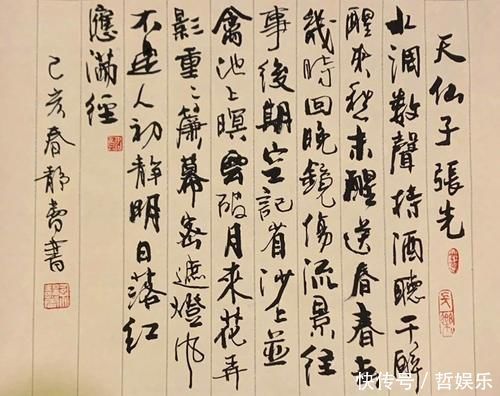 天仙子張先
水調數聲持酒聽午醉
醒來愁未醒送春春去
幾時回晚鏡傷流景往
事後期空記省沙上並
禽池上暝雲破月來花弄
影重〻簾幕密遮燈風
不定人初靜明日落紅
應滿徑
己亥春靜書
快传号／哲娱乐